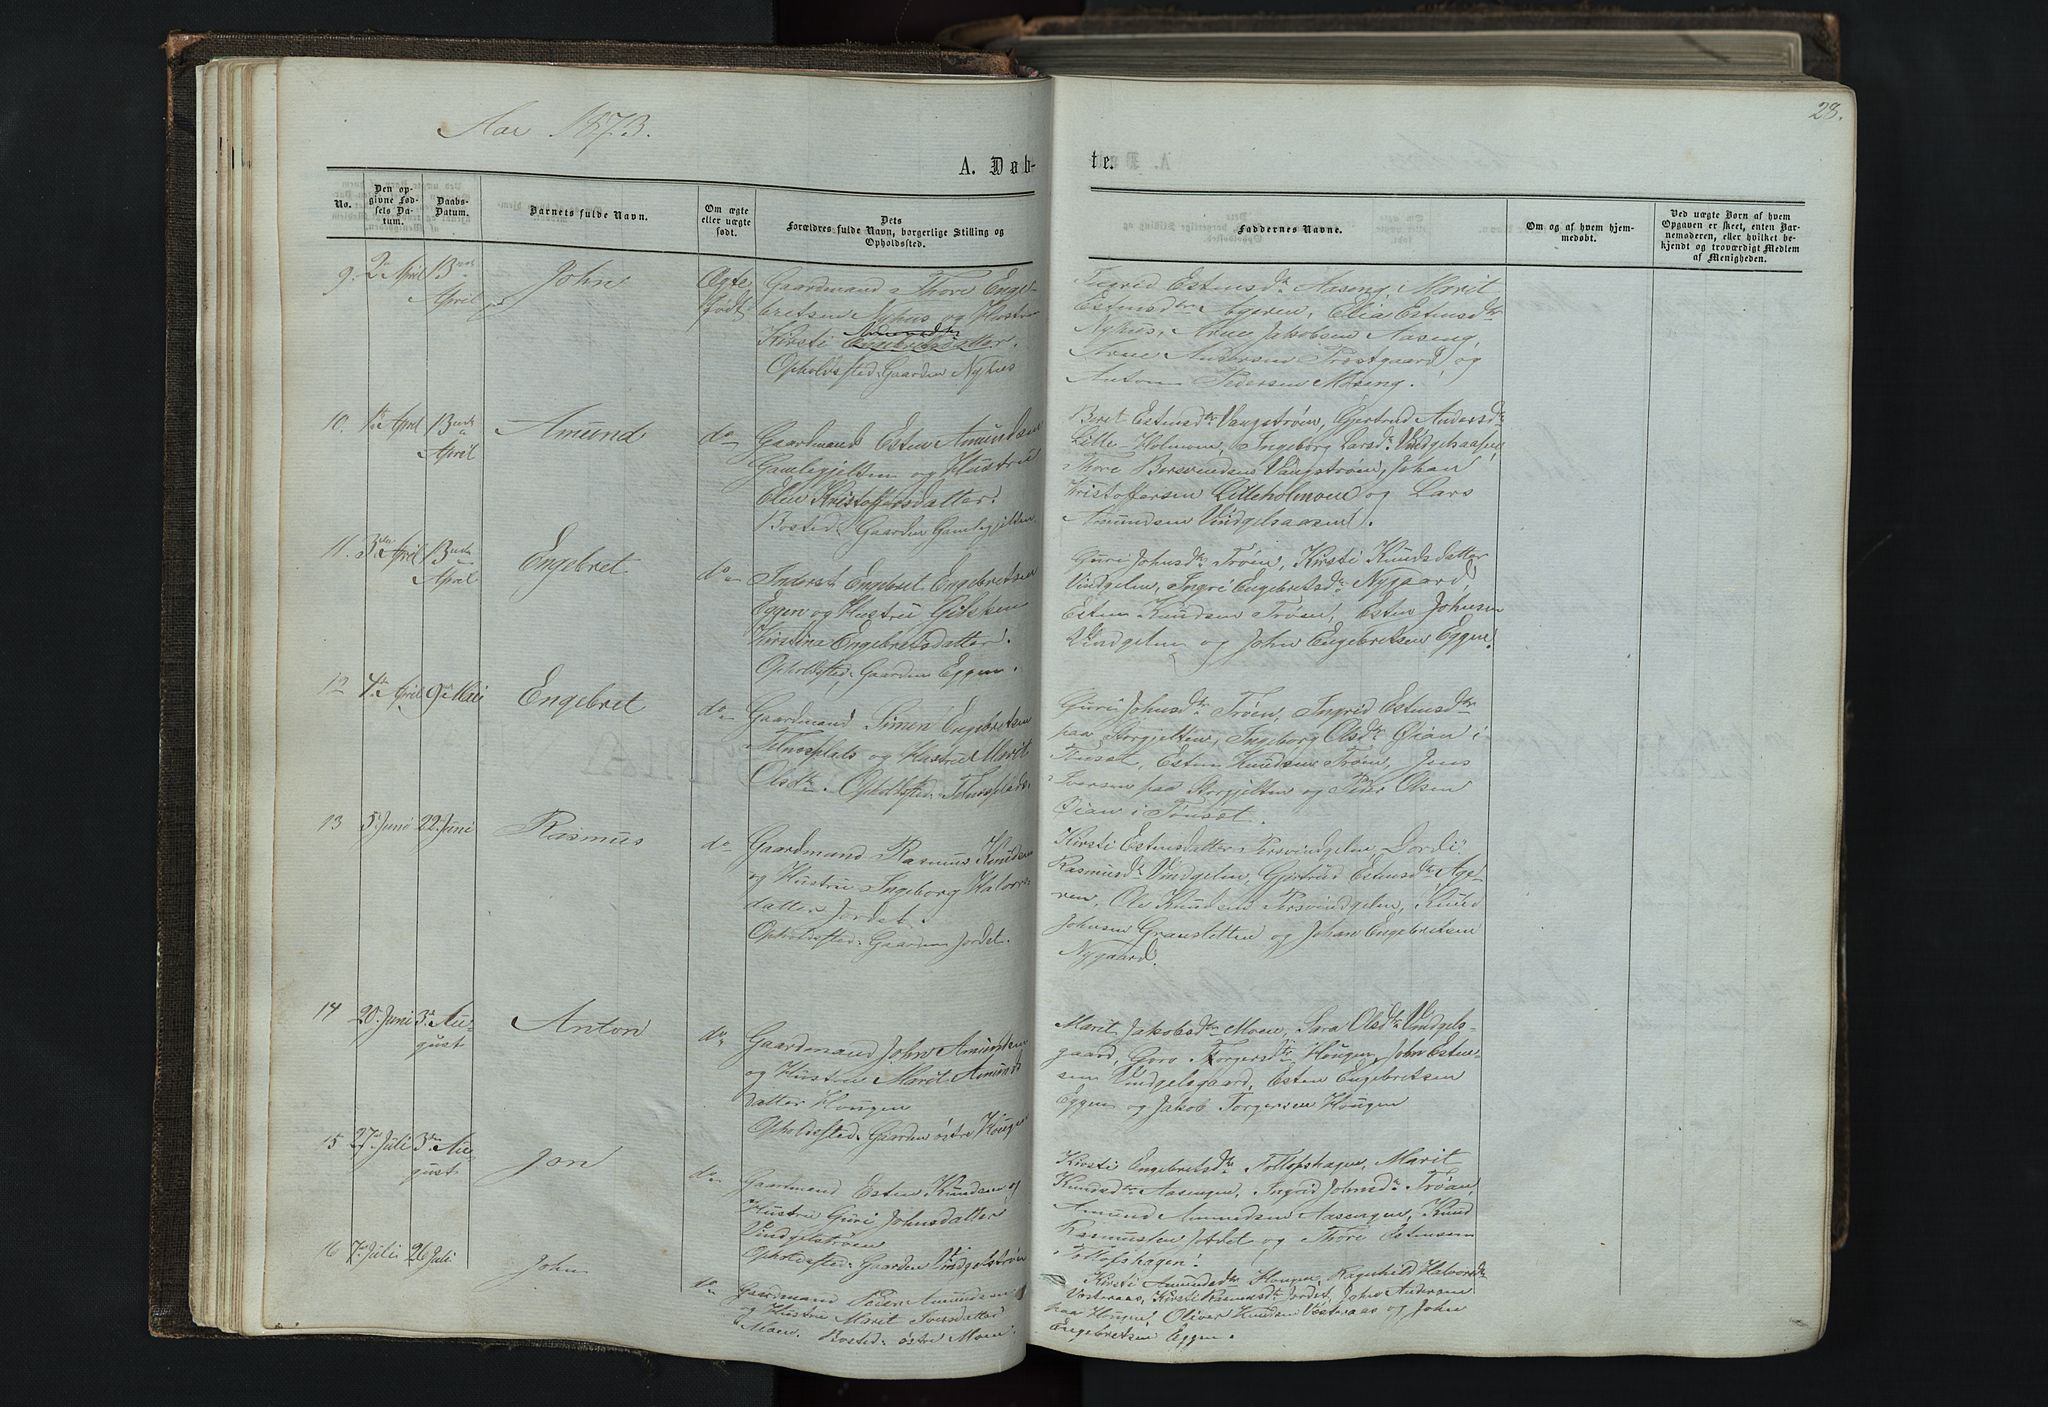 28.
Aar 1873.
A. Døb- te.
No.
Den op-
givne Fød-
sels Da-
tum.
Daabs-
Datum.
Barnets fulde Navn.
Om ægte
eller uægte
født.
Dets
Forældres fulde Navn, borgerlige Stilling og
Opholdssted.
Faddernes Navne.
Om og af hvem hjem-
medøbt.
Ved uægte Børn af hvem
Opgaven er skeet, enten Bar-
nemoderen, eller hvilket be-
kjendt og troværdigt Medlem
af Menigheden.
9. 2den April 13nde
April
John
Ægte
født
Gaardmand Thore Engel-
bretsen Nyhus og Hustru
Kirsti Engebretsdatter.
Opholdssted Gaarden Nyhus
Ingrid Estensdtr Aaseng, Marit
Estensdtr Ageren, Elia Estensdtr
Nyhus, Arne Jakobsen Aaseng,
Arne Andersen Præstgaard og
Anton Pedersen Moseng.
10. 1ste April 13nde
April
Amund
do
Gaardmand Esten Amundsen
Gamlegjelten og Hustru
Elen Kristoffersdatter.
Bosted Gaarden Gamlegjelten
Beret Estensdtr Vangstrøen, Gjertrud Andersdtr
Lille-Holmen, Ingeborg Larsdtr Vingelsaasen,
Thore Vangstrøen, Johan
Kristoffersen Lilleholmen og Lars
Amundsen Vingelsaasen.
11. 3die April 13nde
April
Engebret
do
Inderst Engebret Engebretsen
Eggen og Hustru Gølsken
Kirstina Engebretsdatter.
Opholdssted Gaarden Eggen.
Guri Johnsdtr Trøen, Kirsti Knudsdatter
Vingelen, Ingri Engebretsdtr Nygaard,
Esten Knudsen Trøen, Esten Johnsen
Vingelen og John Engebretsen Eggen.
12 4de April 9de Mai
Engebret
do
Gaardmand Simen Engebretsen
Telnesplads og Hustru Marit
Olsdtr. Opholdssted Telnesplads.
Guri Johnsdtr Trøen, Ingrid Estensdtr
paa Storgjelten, Ingeborg Olsdtr Øian i
Tønset, Esten Knudsen Trøen, Jens
Iversen paa Storgjelten og Peder Olsen
Øian i Tønset.
13 5 Juni 22 Juni
Rasmus
do
Gaardmand Rasmus Knudsen
og Hustru Ingeborg Halvors-
datter Jordet.
Opholdssted Gaarden Jordet.
Kirsti Estensdatter Persvingelen, Dordi
Rasmusdtr Vingelen, Gjertrud Estensdtr Age-
ren, Ole Knudsen Persvingelen, Knud
Johnsen Granslette og Johan Engebretsen
Nygaard.
14 20 Juni 3die Au-
gust
Anton
do
Gaardmand John Amundsen
og Hustru Marit Amunds-
datter Hougen
Opholdssted Gaarden østre Hougen
Marit Jakobsdtr Moen, Sara Olsdtr Vingels-
gaard, Goro Torgersdtr Hougen, John Esten-
sen Vingelsgaard, Esten Engebretsen
Eggen og Jakob Torgersen Hougen
15 27 Juli 3die Au-
gust
Jon
do
Gaardmand Esten Knudsen og
Hustru Guri Johnsdatter
Vingelstrøen
Opholdssted Gaarden Vingelstrøen
Kirsti Engebretsdtr Tollofshagen, Marit
Knudsdtr Aasengen, Ingrid Johnsdtr Trøen,
Amund Amundsen Aasengen, Knud
Rasmussen Jordet og Thore Estensen
Tollofshagen.
16 7de Juli 26 Juli
John
do
Gaardmand Peder Amundsen
og Hustru Marit Iversdatter
Moen. Bosted østre Moen.
Kirsti Amundsdtr Hougen, Ragnhild Halvorsdtr
Vesteraas, Kirsti Rasmusdtr Jordet, John Andersen
paa Hougen, Oliver Knudsen Vesteraas og John
Engebretsen Eggen.